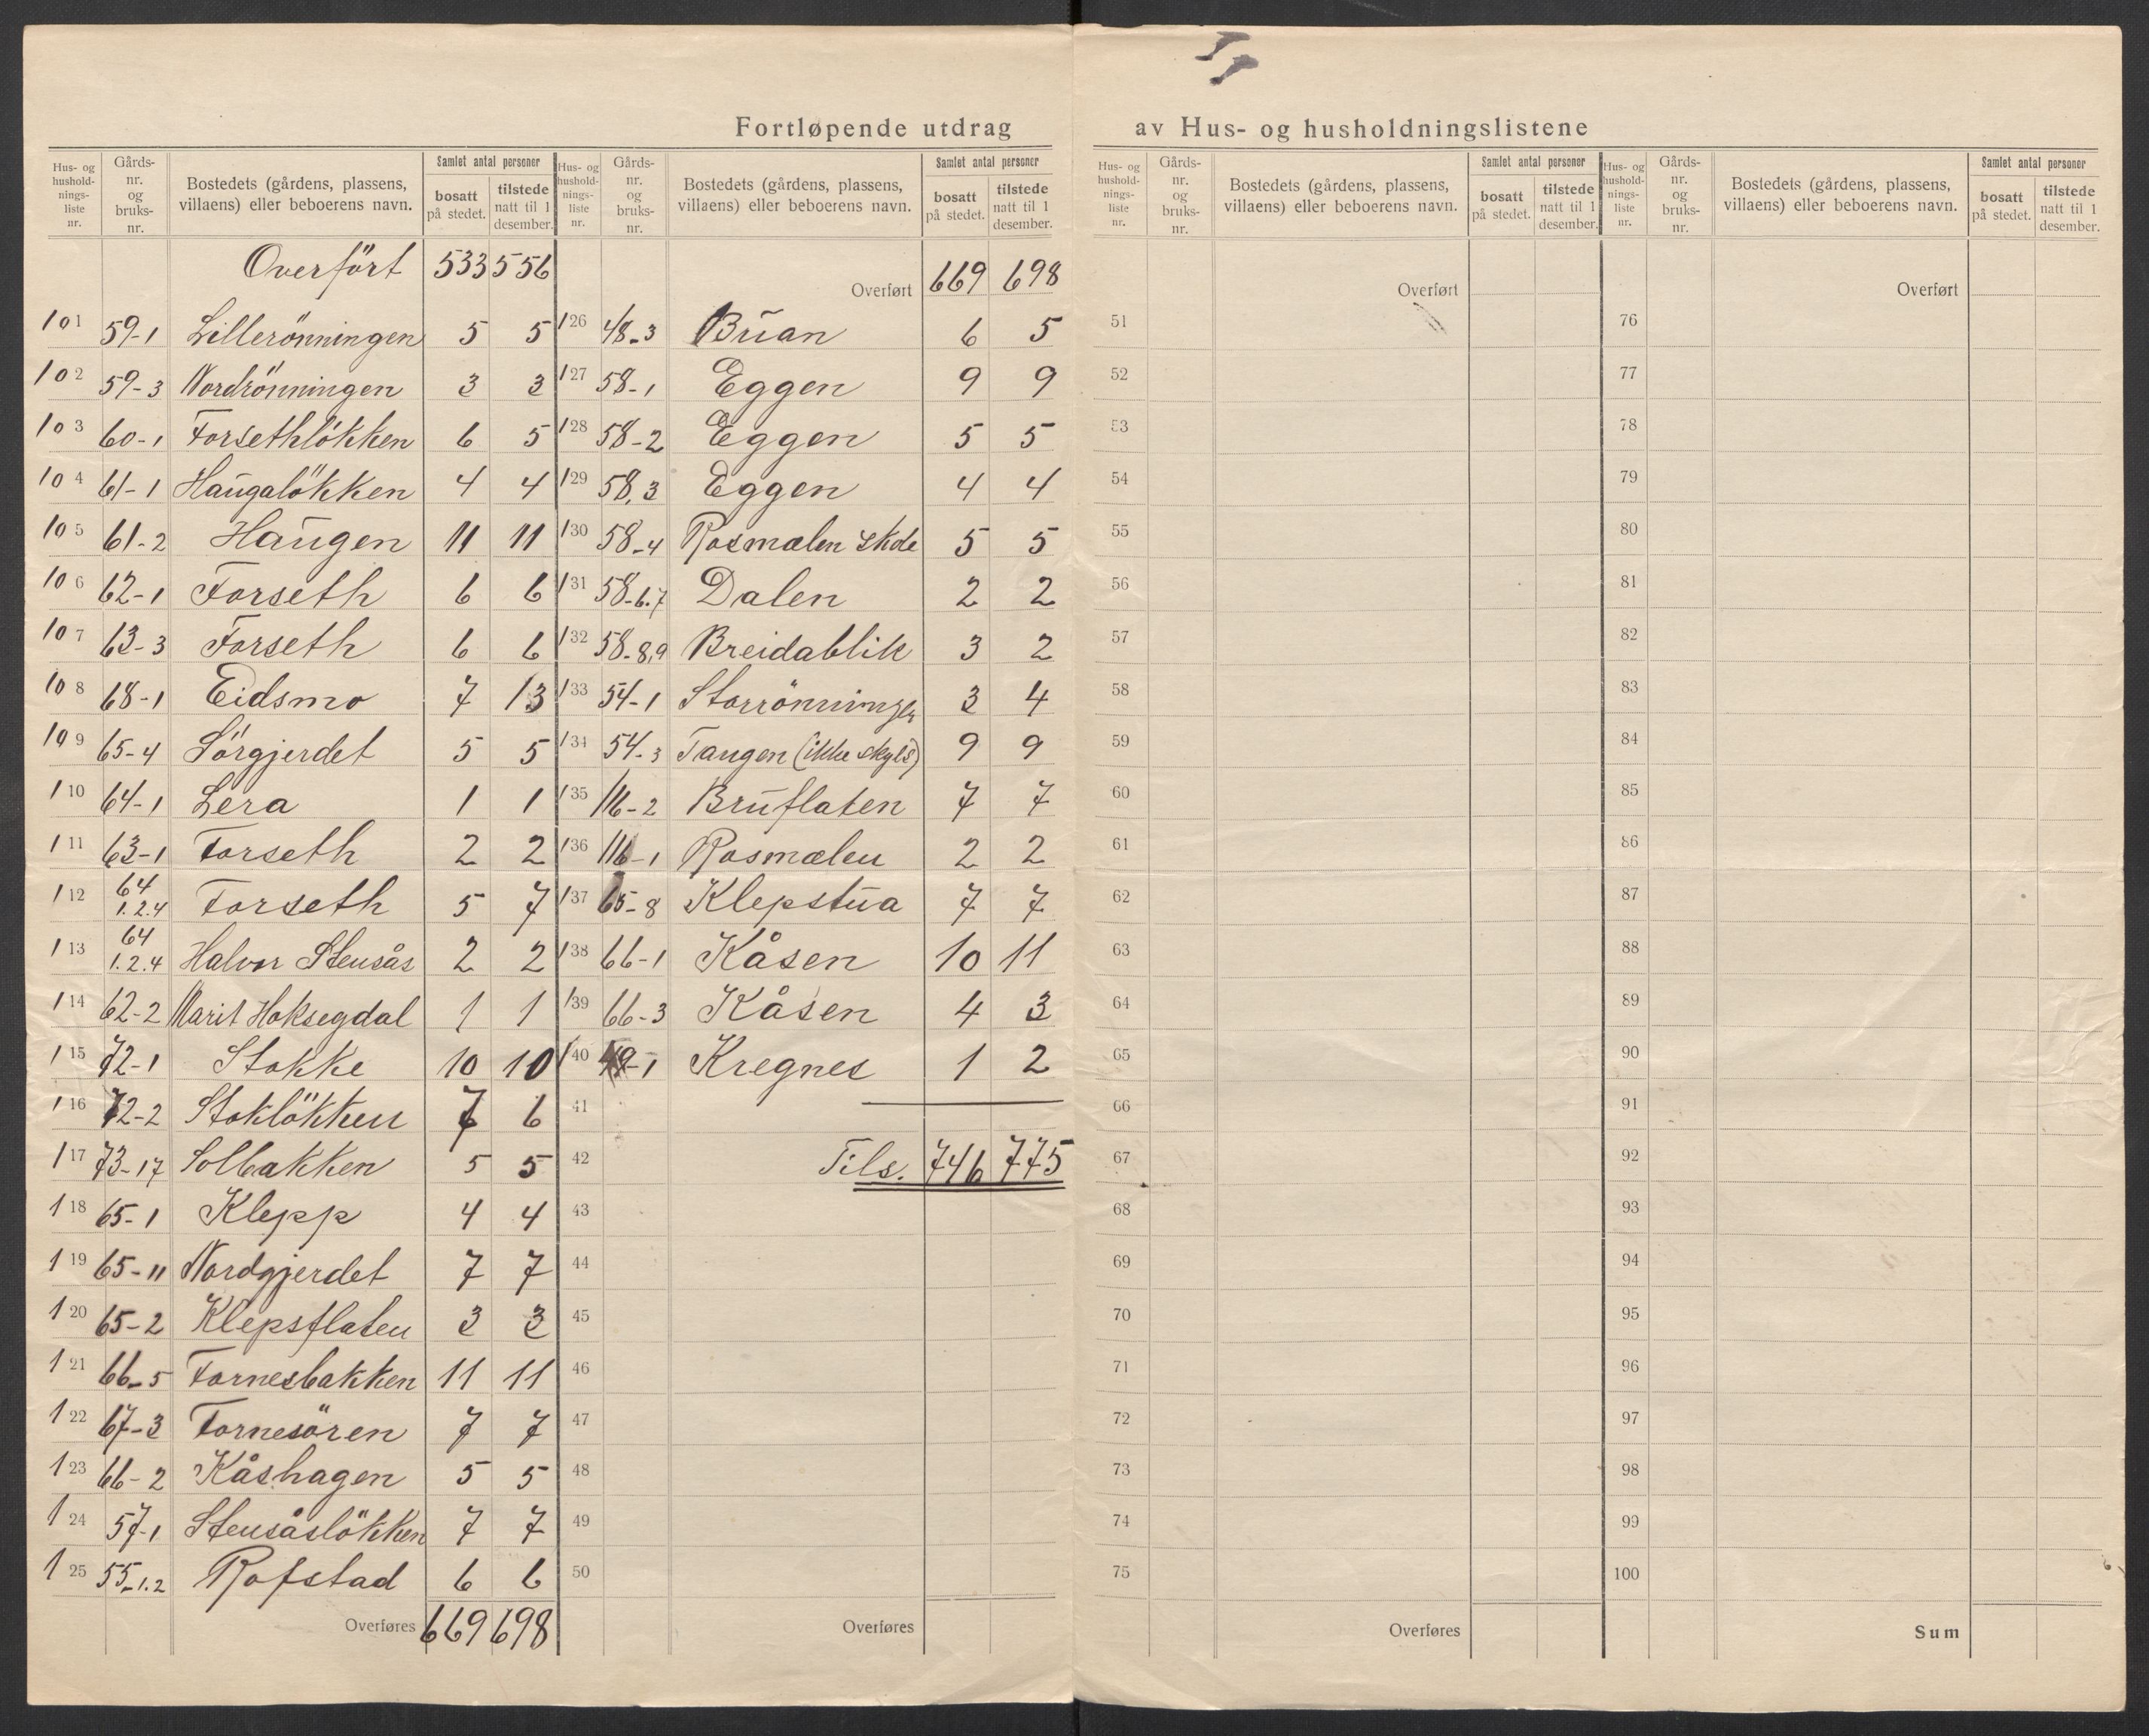 Fortløpende utdrag av Hus- og husholdningslistene
Hus- og hushold-nings-liste nr. Gårds-nr. og bruks-nr. Bostedets (gårdens, plassens, villaens) eller beboerens navn. Samlet antal personer bosatt på stedet. tilstede natt til 1 desember.
Overfört 533 556
101 59-1 Lillerönningen 5 5
102 59-3 Nordrönningen 3 3
103 60-1 Forsethlökken 6 5
104 61-1 Haugalökken 4 4
105 61-2 Haugen 11 11
106 62-1 Forseth 6 6
107 63-3 Forseth 6 6
108 68-1 Eidsmo 7 13
109 65-4 Sörgjerdet 5 5
110 64-1 Lera 1 1
111 63-1 Forseth 2 2
112 64 1.2.4 Forseth 5 7
113 64 1.2.4 Halvor Stensås 2 2
114 62-2 Marit Hoksegdal 1 1
115 72-1 Stokke 10 10
116 72-2 Stoklökken 7 6
117 73-17 Solbakken 5 5
118 65-1 Klepp 4 4
119 65-11 Nordgjerdet 7 7
120 65-2 Klepsflaten 3 3
121 66-5 Fornesbakken 11 11
122 67-3 Fornesören 7 7
123 66-2 Kåshagen 5 5
124 57-1 Stensåslökken 7 7
125 55-1.2 Rofstad 6 6
Overføres 669 698
Hus- og hushold-nings-liste nr. Gårds-nr. og bruks-nr. Bostedets (gårdens, plassens, villaens) eller beboerens navn. Samlet antal personer bosatt på stedet. tilstede natt til 1 desember.
Overført 669 698
126 48-3 Buan 6 5
127 58-1 Eggen 9 9
128 58-2 Eggen 5 5
129 58,3 Eggen 4 4
130 58-4 Rosmælen skole 5 5
131 58-6.7 Dalen 2 2
132 58-8,9 Breidablik 3 2
133 54-1 Storrönningen 3 4
134 54-3 Tangen (ikke skyls) 9 9
135 116-2 Bruflaten 7 7
136 116-1 Rosmælen 2 2
137 65-8 Klepstua 7 7
138 66-1 Kåsen 10 11
139 66-3 Kåsen 4 3
140 49-1 Kregnes 1 2
41
42 Tils. 746 775
43
44
45
46
47
48
49
50
Overføres
Hus- og hushold-nings-liste nr. Gårds-nr. og bruks-nr. Bostedets (gårdens, plassens, villaens) eller beboerens navn. Samlet antal personer bosatt på stedet. tilstede natt til 1 desember.
Overført
51
52
53
54
55
56
57
58
59
60
61
62
63
64
65
66
67
68
69
70
71
72
73
74
75
Overføres
Hus- og hushold-nings-liste nr. Gårds-nr. og bruks-nr. Bostedets (gårdens, plassens, villaens) eller beboerens navn. Samlet antal personer bosatt på stedet. tilstede natt til 1 desember.
Overført
76
77
78
79
80
81
82
83
84
85
86
87
88
89
90
91
92
93
94
95
96
97
98
99
100
Sum